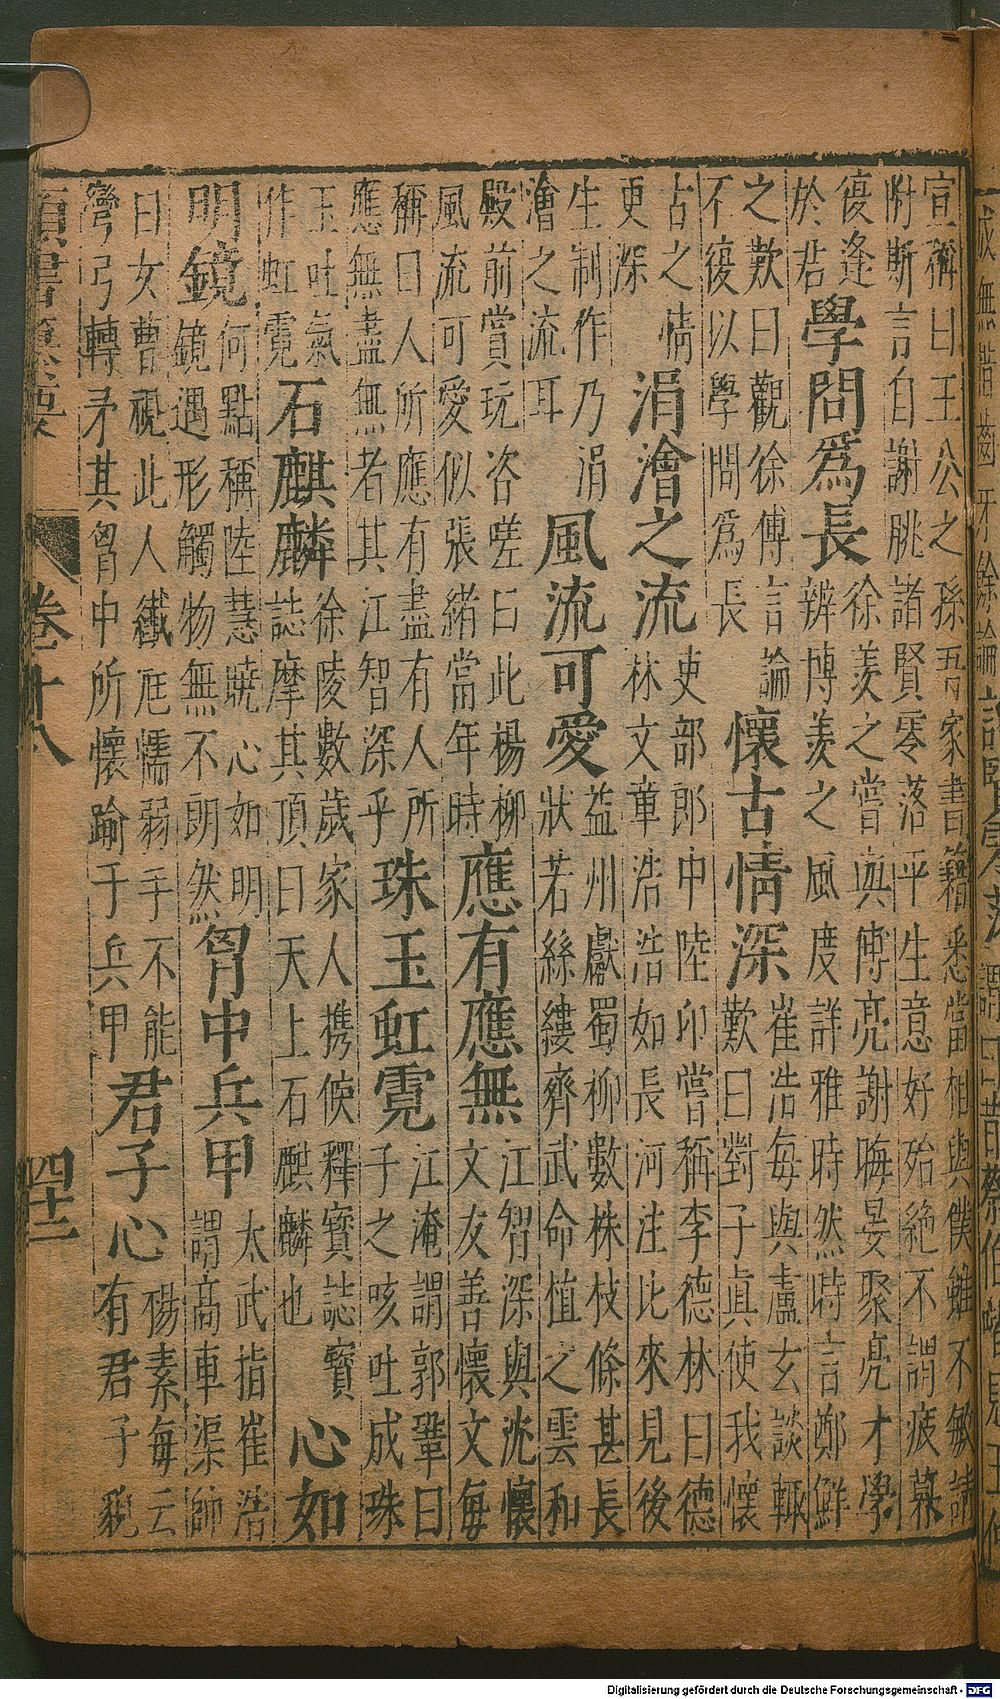 宣稱曰王公之孫吾家書籍悉當相與僕雖不敏請
附斯言自謝朓諸賢零落平生意好殆絕不謂疲暮
復逢
於君
學問爲長
徐羨之嘗與傅亮謝晦晏聚亮才學
辨博羨之風度詳雅時然時言鄭鮮
之歎曰觀徐傅言論
不復以學問爲長
懷古情深
崔浩每與盧玄談輒
歎曰對子眞使我懷
古之情
更深
涓澮之流
吏部郎中陸卬嘗稱李德林曰德
林文章浩浩如長河注比來見後
生制作乃涓
澮之流耳
風流可愛
益州獻蜀柳數株枝條甚長
狀若絲縷齊武命植之雲和
殿前賞玩咨嗟曰此楊柳
風流可愛似張緒當年時
應有應無
江智深與沈懷
文友善懷文每
稱曰人所應有盡有人所
應無盡無者其江智深乎
珠玉虹霓
江淹謂郭鞏曰
子之咳吐成珠
玉吐氣
作虹霓
石麒麟
徐陵數歲家人携候釋寶誌寶
誌摩其頂曰天上石麒麟也
心如
明鏡
何點稱陸慧曉心如明
鏡遇形觸物無不朗然
胷中兵甲
太武指崔浩
謂高車渠帥
曰女曹視此人纖尫懦弱手不能
彎弓轉矛其胷中所懷踰于兵甲
君子心
楊素每云
有君子貌
類書纂要 卷十八 四十二
Digitalisierung gefördert durch die Deutsche Forschungsgemeinschaft - DFG